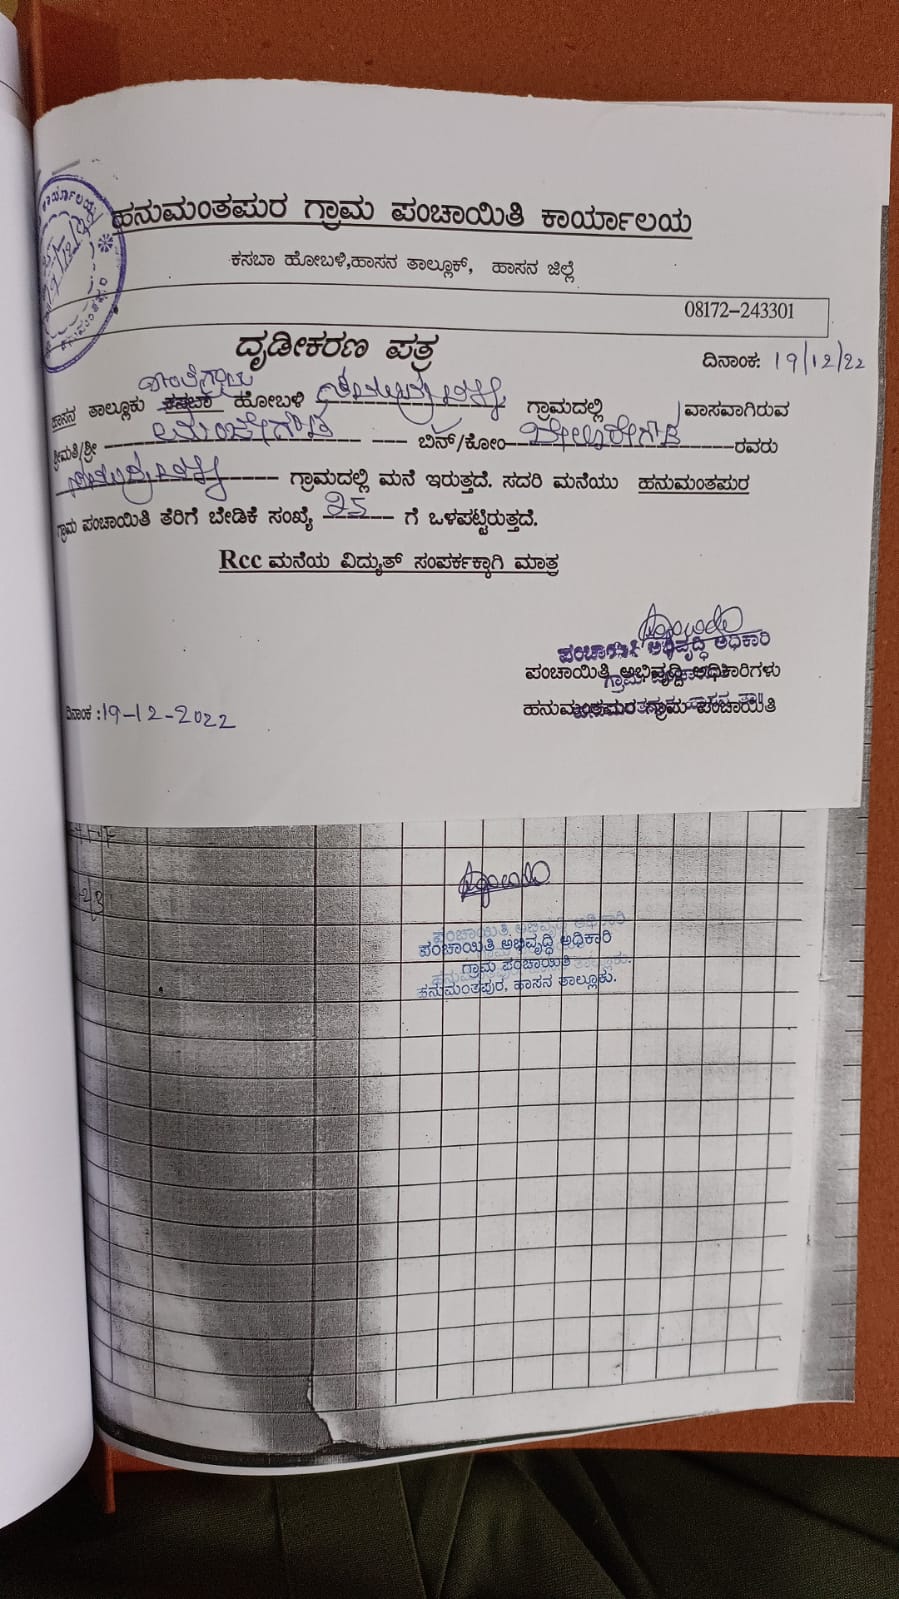 ಹನುಮಂತಪುರ ಗ್ರಾಮ ಪಂಚಾಯಿತಿ ಕಾರ್ಯಾಲಯ
ಕಸಬಾ ಹೋಬಳಿ,ಹಾಸನ ತಾಲ್ಲೂಕ್, ಹಾಸನ ಜಿಲ್ಲೆ
08172-243301
ದೃಡೀಕರಣ ಪತ್ರ
ದಿನಾಂಕ: 19/12/22
ಹಾಸನ ತಾಲ್ಲೂಕು ಕಸಬಾ ಹೋಬಳಿ ಗ್ರಾಮದಲ್ಲಿ ವಾಸವಾಗಿರುವ
ಶ್ರೀಮತಿ/ಶ್ರೀ ಬಿನ್/ಕೋಂ ರವರು
ಗ್ರಾಮದಲ್ಲಿ ಮನೆ ಇರುತ್ತದೆ. ಸದರಿ ಮನೆಯು ಹನುಮಂತಪುರ
ಗ್ರಾಮ ಪಂಚಾಯಿತಿ ತೆರಿಗೆ ಬೇಡಿಕೆ ಸಂಖ್ಯೆ ಗೆ ಒಳಪಟ್ಟಿರುತ್ತದೆ.
Rcc ಮನೆಯ ವಿದ್ಯುತ್ ಸಂಪರ್ಕಕ್ಕಾಗಿ ಮಾತ್ರ
ಪಂಚಾಯಿತಿ ಅಭಿವೃದ್ಧಿ ಅಧಿಕಾರಿ
ಪಂಚಾಯಿತಿ ಅಭಿವೃದ್ಧಿ ಅಧಿಕಾರಿಗಳು
ಹನುಮಂತಪುರ ಗ್ರಾಮ ಪಂಚಾಯಿತಿ
ದಿನಾಂಕ :19-12-2022
ಪಂಚಾಯಿತಿ ಅಭಿವೃದ್ಧಿ ಅಧಿಕಾರಿ
ಗ್ರಾಮ ಪಂಚಾಯಿತಿ
ಹನುಮಂತಪುರ, ಹಾಸನ ತಾಲ್ಲೂಕು.